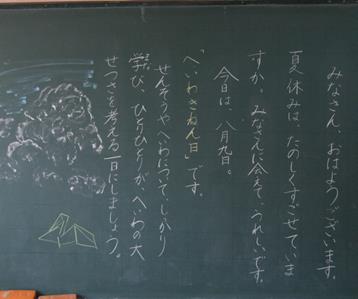 みなさん、おはようございます。
夏休みは、たのしくすごせていま
すか。みなさんに会えて、うれしいです。
今日は、八月九日。
「へいわきねん日」です。
せんそうやへいわについて、しっかり
学び、ひとりひとりが、へいわの大
せつさを考える一日にしましょう。